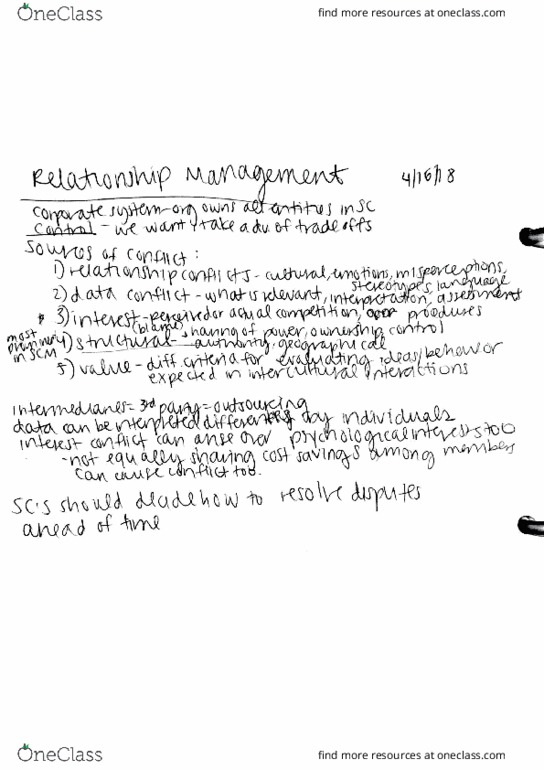 OneClass
find more resources at oneclass.com
Relationship Management 4/16/18
corporate system-org owns all entities in SC
control - we want take adv of trade offs
sources of conflict:
1) relationship conflicts - cultural, emotions, misperceptions,
stereotypes, language
2) data conflict - what is relevant, interpretation, assessment
3) interest - perceived or actual competition, over
(blame)
most
in SCM
4) structural - sharing of power, ownership, control
authority, geographical
5) value - diff. criteria for evaluating ideas/behavior
expected in intercultural interactions
intermediaries = 3rd party = outsourcing
data can be interpreted differently by individuals
interest conflict can arise over psychological interests too
- not equally sharing cost savings among members
can cause conflict too.
SC's should decide how to resolve disputes
ahead of time
OneClass
find more resources at oneclass.com